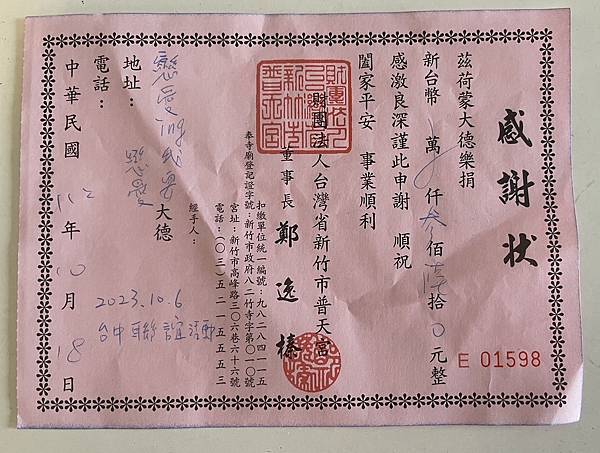 感謝狀
茲荷蒙大德樂捐
新台幣 萬 仟叁佰 拾0元整
感激良深謹此申謝 順祝
闔家平安 事業順利
財團法人台灣省新竹市普天宮
董事長 鄭逸榛
扣繳單位統一編號：九八二八四一一五
奉寺廟登記證字號：新竹市政府八二竹寺字第〇一〇號
宮址：新竹市高峰路三〇六巷六十六號
電話：（〇三）五二一五五五三
經手人：
戀愛ing 大德
戀愛
地址：
電話：
中華民國 112 年 10 月 18 日
2023.10.6
台中聯誼活動
E 01598